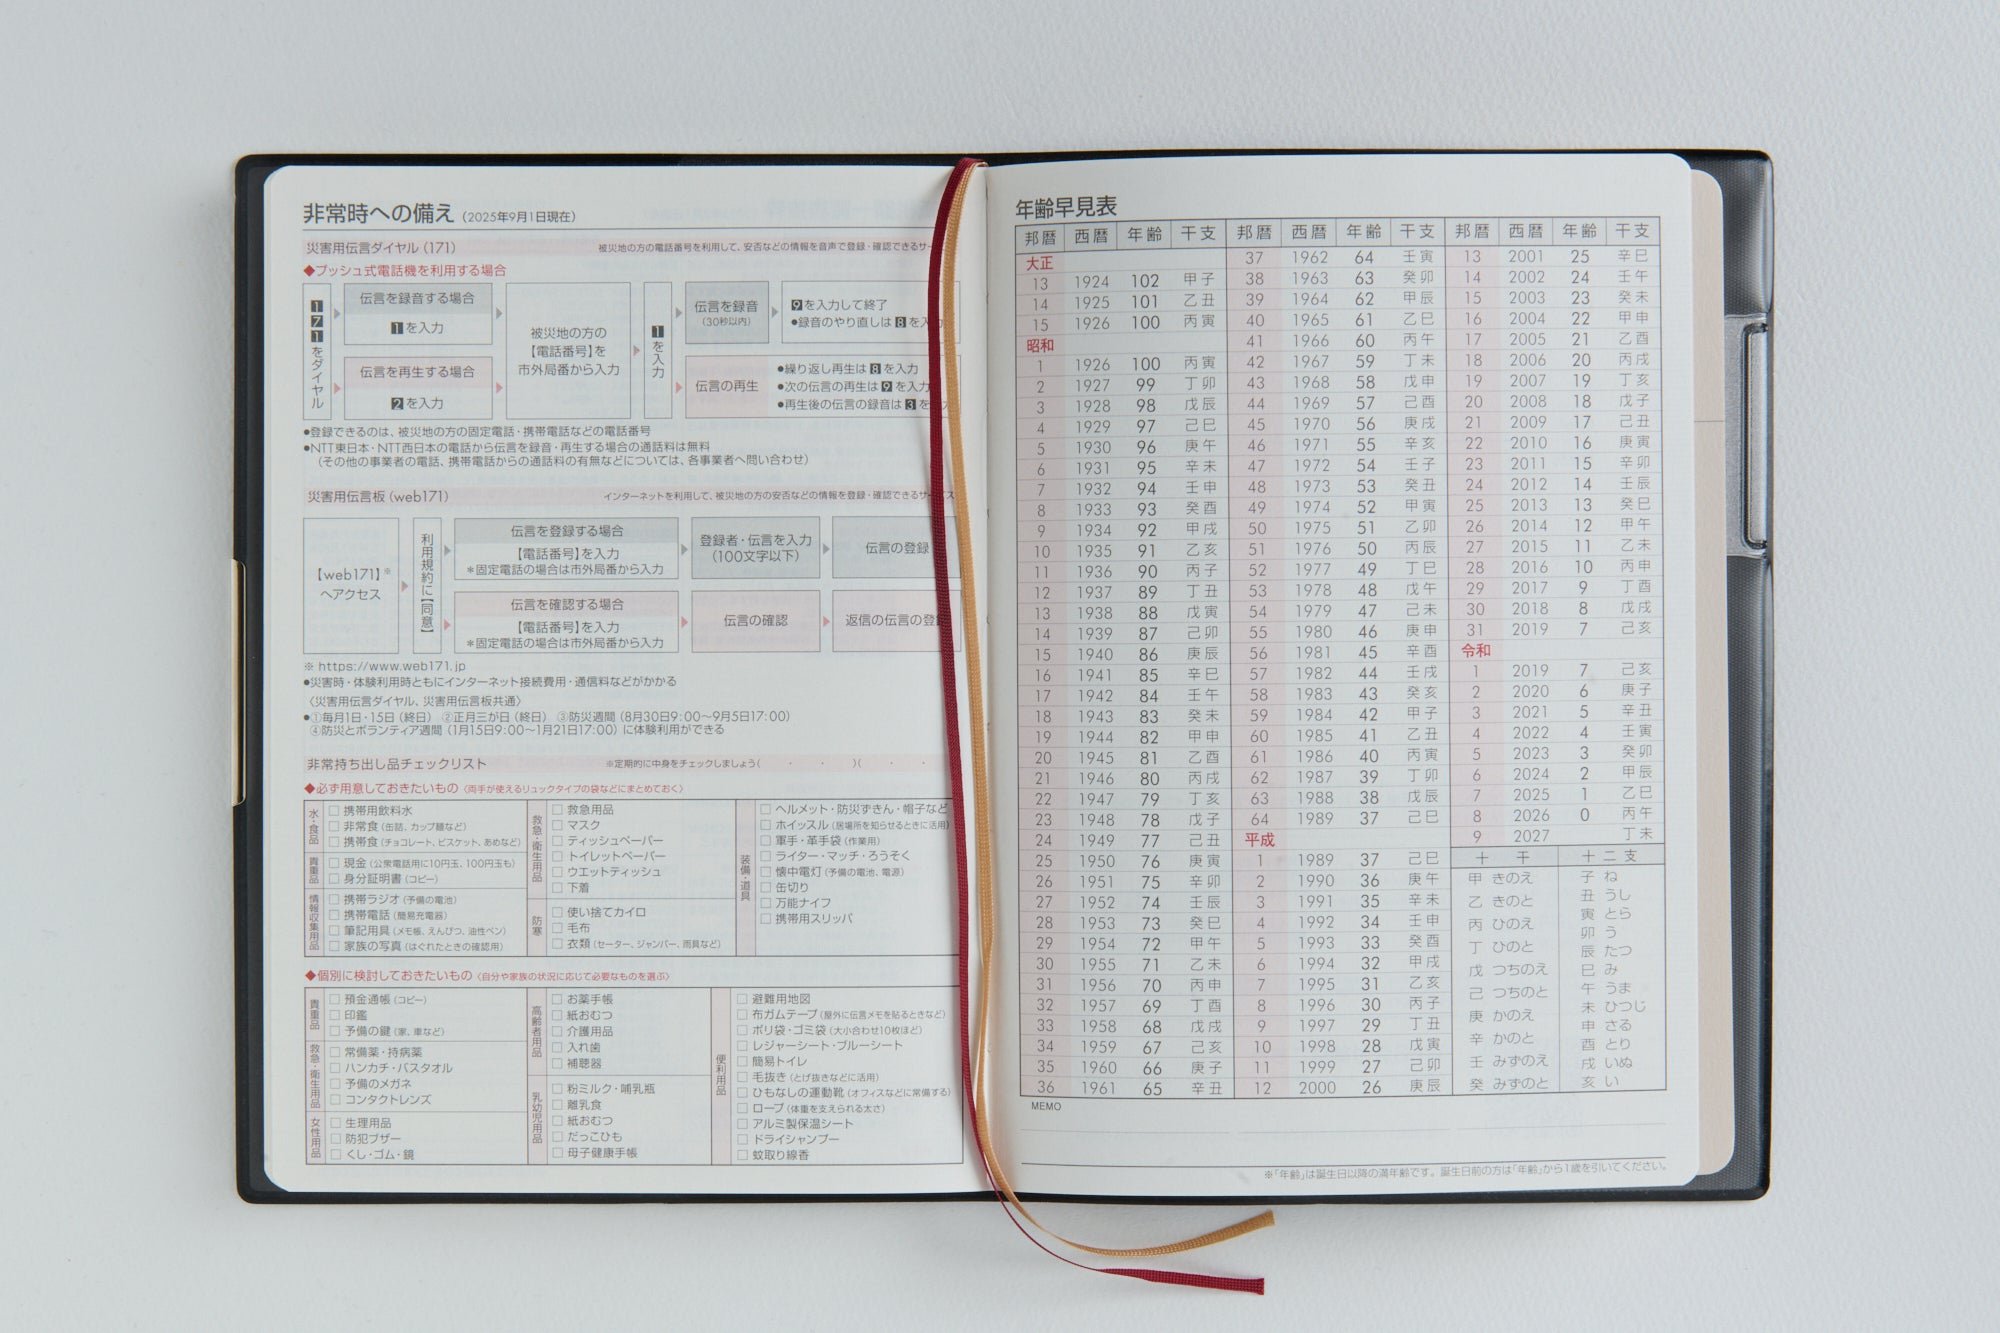 非常時への備え（2025年9月1日現在）
災害用伝言ダイヤル（171） 被災地の方の電話番号を利用して、安否などの情報を音声で登録・確認できるサー
◆プッシュ式電話機を利用する場合
171をダイヤル
伝言を録音する場合
1を入力
伝言を再生する場合
2を入力
被災地の方の
【電話番号】を
市外局番から入力
1を入力
伝言を録音
（30秒以内）
9を入力して終了
●録音のやり直しは8を入力
伝言の再生
●繰り返し再生は8を入力
●次の伝言の再生は9を入力
●再生後の伝言の録音は3を
●登録できるのは、被災地の方の固定電話・携帯電話などの電話番号
●NTT東日本・NTT西日本の電話から伝言を録音・再生する場合の通話料は無料
（その他の事業者の電話、携帯電話からの通話料の有無などについては、各事業者へ問い合わせ）
災害用伝言板（web171） インターネットを利用して、被災地の方の安否などの情報を登録・確認できるサービス
【web171】※
へアクセス
利用規約に【同意】
伝言を登録する場合
【電話番号】を入力
＊固定電話の場合は市外局番から入力
登録者・伝言を入力
（100文字以下）
伝言の登録
伝言を確認する場合
【電話番号】を入力
＊固定電話の場合は市外局番から入力
伝言の確認
返信の伝言の登録
※ https://www.web171.jp
●災害時・体験利用時ともにインターネット接続費用・通信料などがかかる
〈災害用伝言ダイヤル、災害用伝言板共通〉
●①毎月1日・15日（終日） ②正月三が日（終日） ③防災週間（8月30日9:00〜9月5日17:00）
④防災とボランティア週間（1月15日9:00〜1月21日17:00）に体験利用ができる
非常持ち出し品チェックリスト ※定期的に中身をチェックしましょう（ ・ ・ ）（ ・ ・
◆必ず用意しておきたいもの〈両手が使えるリュックタイプの袋などにまとめておく〉
水・食品
□ 携帯用飲料水
□ 非常食（缶詰、カップ麺など）
□ 携帯食（チョコレート、ビスケット、あめなど）
貴重品
□ 現金（公衆電話用に10円玉、100円玉も）
□ 身分証明書（コピー）
情報収集用品
□ 携帯ラジオ（予備の電池）
□ 携帯電話（簡易充電器）
□ 筆記用具（メモ帳、えんぴつ、油性ペン）
□ 家族の写真（はぐれたときの確認用）
救急・衛生用品
□ 救急用品
□ マスク
□ ティッシュペーパー
□ トイレットペーパー
□ ウエットティッシュ
□ 下着
防寒
□ 使い捨てカイロ
□ 毛布
□ 衣類（セーター、ジャンパー、雨具など）
装備・道具
□ ヘルメット・防災ずきん・帽子など
□ ホイッスル（居場所を知らせるときに活用）
□ 軍手・革手袋（作業用）
□ ライター・マッチ・ろうそく
□ 懐中電灯（予備の電池、電源）
□ 缶切り
□ 万能ナイフ
□ 携帯用スリッパ
◆個別に検討しておきたいもの〈自分や家族の状況に応じて必要なものを選ぶ〉
貴重品
□ 預金通帳（コピー）
□ 印鑑
□ 予備の鍵（家、車など）
救急・衛生用品
□ 常備薬・持病薬
□ ハンカチ・バスタオル
□ 予備のメガネ
□ コンタクトレンズ
女性用品
□ 生理用品
□ 防犯ブザー
□ くし・ゴム・鏡
高齢者用品
□ お薬手帳
□ 紙おむつ
□ 介護用品
□ 入れ歯
□ 補聴器
乳幼児用品
□ 粉ミルク・哺乳瓶
□ 離乳食
□ 紙おむつ
□ だっこひも
□ 母子健康手帳
便利用品
□ 避難用地図
□ 布ガムテープ（屋外に伝言メモを貼るときなど）
□ ポリ袋・ゴミ袋（大小合わせ10枚ほど）
□ レジャーシート・ブルーシート
□ 簡易トイレ
□ 毛抜き（とげ抜きなどに活用）
□ ひもなしの運動靴（オフィスなどに常備する）
□ ロープ（体重を支えられる太さ）
□ アルミ製保温シート
□ ドライシャンプー
□ 蚊取り線香
年齢早見表
邦暦 西暦 年齢 干支
大正
13 1924 102 甲子
14 1925 101 乙丑
15 1926 100 丙寅
昭和
1 1926 100 丙寅
2 1927 99 丁卯
3 1928 98 戊辰
4 1929 97 己巳
5 1930 96 庚午
6 1931 95 辛未
7 1932 94 壬申
8 1933 93 癸酉
9 1934 92 甲戌
10 1935 91 乙亥
11 1936 90 丙子
12 1937 89 丁丑
13 1938 88 戊寅
14 1939 87 己卯
15 1940 86 庚辰
16 1941 85 辛巳
17 1942 84 壬午
18 1943 83 癸未
19 1944 82 甲申
20 1945 81 乙酉
21 1946 80 丙戌
22 1947 79 丁亥
23 1948 78 戊子
24 1949 77 己丑
25 1950 76 庚寅
26 1951 75 辛卯
27 1952 74 壬辰
28 1953 73 癸巳
29 1954 72 甲午
30 1955 71 乙未
31 1956 70 丙申
32 1957 69 丁酉
33 1958 68 戊戌
34 1959 67 己亥
35 1960 66 庚子
36 1961 65 辛丑
邦暦 西暦 年齢 干支
37 1962 64 壬寅
38 1963 63 癸卯
39 1964 62 甲辰
40 1965 61 乙巳
41 1966 60 丙午
42 1967 59 丁未
43 1968 58 戊申
44 1969 57 己酉
45 1970 56 庚戌
46 1971 55 辛亥
47 1972 54 壬子
48 1973 53 癸丑
49 1974 52 甲寅
50 1975 51 乙卯
51 1976 50 丙辰
52 1977 49 丁巳
53 1978 48 戊午
54 1979 47 己未
55 1980 46 庚申
56 1981 45 辛酉
57 1982 44 壬戌
58 1983 43 癸亥
59 1984 42 甲子
60 1985 41 乙丑
61 1986 40 丙寅
62 1987 39 丁卯
63 1988 38 戊辰
64 1989 37 己巳
平成
1 1989 37 己巳
2 1990 36 庚午
3 1991 35 辛未
4 1992 34 壬申
5 1993 33 癸酉
6 1994 32 甲戌
7 1995 31 乙亥
8 1996 30 丙子
9 1997 29 丁丑
10 1998 28 戊寅
11 1999 27 己卯
12 2000 26 庚辰
邦暦 西暦 年齢 干支
13 2001 25 辛巳
14 2002 24 壬午
15 2003 23 癸未
16 2004 22 甲申
17 2005 21 乙酉
18 2006 20 丙戌
19 2007 19 丁亥
20 2008 18 戊子
21 2009 17 己丑
22 2010 16 庚寅
23 2011 15 辛卯
24 2012 14 壬辰
25 2013 13 癸巳
26 2014 12 甲午
27 2015 11 乙未
28 2016 10 丙申
29 2017 9 丁酉
30 2018 8 戊戌
31 2019 7 己亥
令和
1 2019 7 己亥
2 2020 6 庚子
3 2021 5 辛丑
4 2022 4 壬寅
5 2023 3 癸卯
6 2024 2 甲辰
7 2025 1 乙巳
8 2026 0 丙午
9 2027 丁未
十干
甲 きのえ
乙 きのと
丙 ひのえ
丁 ひのと
戊 つちのえ
己 つちのと
庚 かのえ
辛 かのと
壬 みずのえ
癸 みずのと
十二支
子 ね
丑 うし
寅 とら
卯 う
辰 たつ
巳 み
午 うま
未 ひつじ
申 さる
酉 とり
戌 いぬ
亥 い
MEMO
※「年齢」は誕生日以降の満年齢です。誕生日前の方は「年齢」から1歳を引いてください。